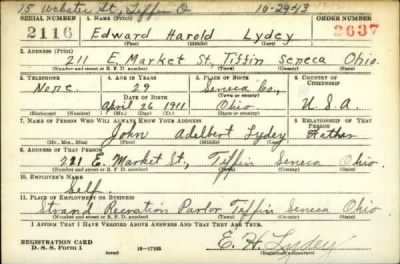 15 Webster St, Tiffin O 10-2943
SERIAL NUMBER 1. NAME (Print) ORDER NUMBER
2116 Edward Harold Lydey 2637
(First) (Middle) (Last)
2. ADDRESS (Print)
211 E. Market St, Tiffin Seneca Ohio.
(Number and street or R. F. D. number) (Town) (County) (State)
3. TELEPHONE 4. AGE IN YEARS 5. PLACE OF BIRTH 6. COUNTRY OF CITIZENSHIP
None. 29 Seneca Co.,
DATE OF BIRTH (Town or county)
April 26 1911 Ohio U.S.A.
(Exchange) (Number) (Mo.) (Day) (Yr.) (State or country)
7. NAME OF PERSON WHO WILL ALWAYS KNOW YOUR ADDRESS 8. RELATIONSHIP OF THAT PERSON
John Adelbert Lydey Father
(Mr., Mrs., Miss) (First) (Middle) (Last)
9. ADDRESS OF THAT PERSON
221 E. Market St., Tiffin Seneca Ohio.
(Number and street or R. F. D. number) (Town) (County) (State)
10. EMPLOYER'S NAME
Self.
11. PLACE OF EMPLOYMENT OR BUSINESS
Strand Recreation Parlor Tiffin Seneca Ohio
(Number and street or R. F. D. number) (Town) (County) (State)
I AFFIRM THAT I HAVE VERIFIED ABOVE ANSWERS AND THAT THEY ARE TRUE.
REGISTRATION CARD
D. S. S. Form 1 (over) 16-17105 E. H. Lydey
(Registrant's signature)